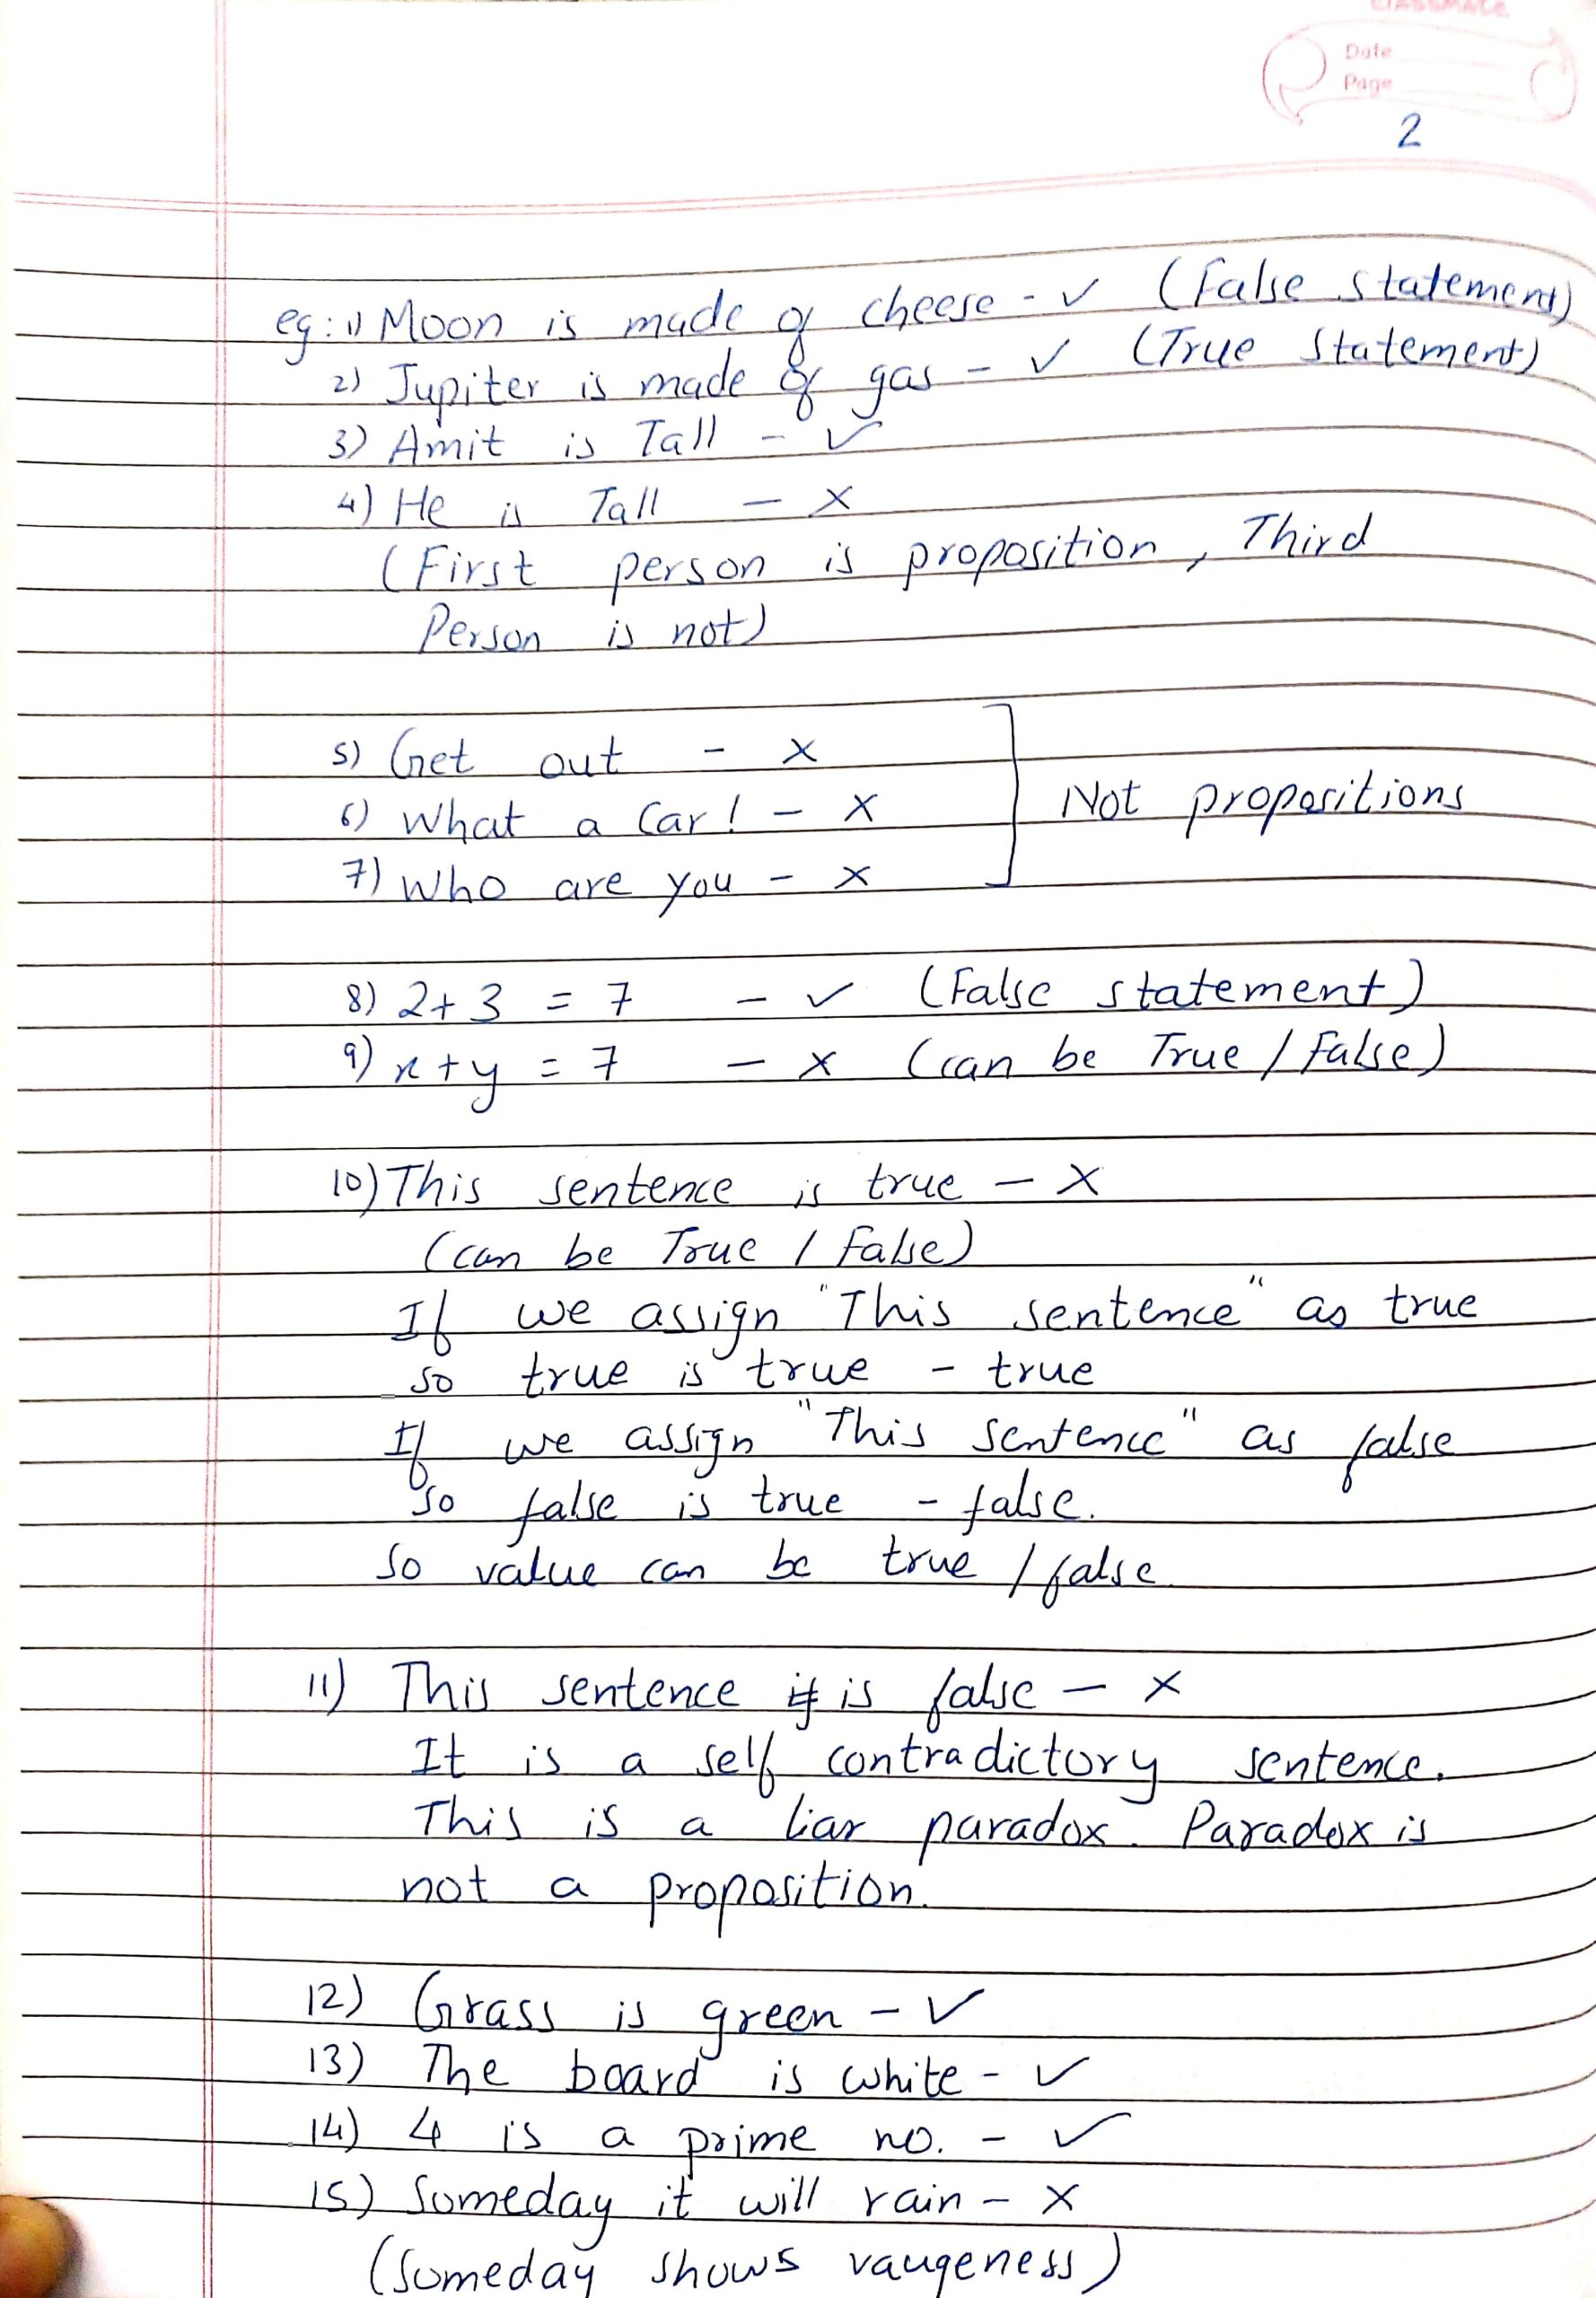 classmate
Date
Page
2
eg: 1) Moon is made of cheese - ✓ (False statement)
2) Jupiter is made of gas - ✓ (True Statement)
3) Amit is Tall - ✓
4) He is Tall - X
(First person is proposition, Third
Person is not)
5) Get out - X
6) What a Car! - X
Not propositions
7) Who are you - X
8) 2+3 = 7 - ✓ (False statement)
9) x+y = 7 - X (can be True / False)
10) This sentence is true - X
(can be True / False)
If we assign "This sentence" as true
so true is true - true
If we assign "This sentence" as false
so false is true - false.
So value can be true / false
11) This sentence if is false - X
It is a self contradictory sentence.
This is a liar paradox. Paradox is
not a proposition.
12) Grass is green - ✓
13) The board is white - ✓
14) 4 is a prime no. - ✓
15) Someday it will rain - X
(Someday shows vaugeness)